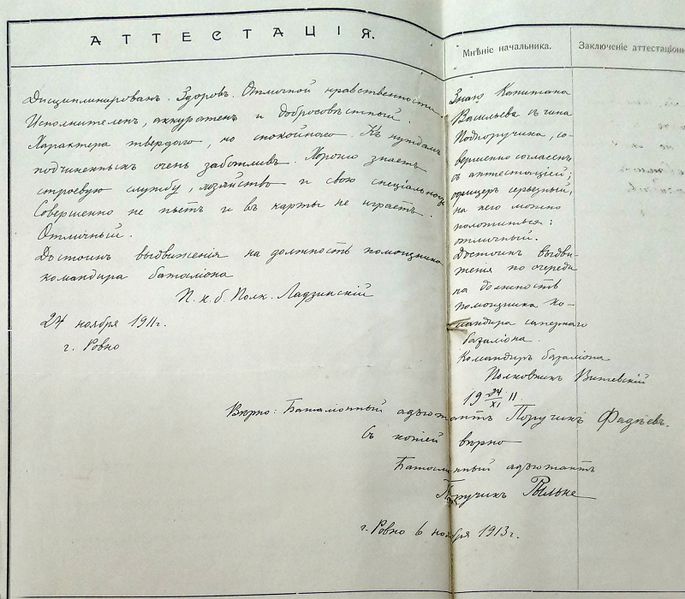 АТТЕСТАЦІЯ.
Мнѣніе начальника.
Заключеніе аттестаціон
Дисциплинированъ. Здоровъ. Отличной нравственности.
Исполнителенъ, аккуратенъ и добросовѣстный.
Характера твердаго, но спокойнаго. Къ нуждамъ
подчиненныхъ очень заботливъ. Хорошо знаетъ
строевую службу, хозяйство и свою спеціальность.
Совершенно не пьетъ и въ карты не играетъ.
Отличный.
Достоинъ выдвиженія на должность помощника
командира баталіона
П. к. б. Полк. Ладзинскій
24 ноября 1911 г.
г. Ровно
Знаю Капитана
Васильева съ чина
Подпоручика, со-
вершенно согласенъ
съ аттестаціей;
офицеръ серьезный,
на него можно
положиться:
отличный.
Достоинъ выдви-
женія по очереди
на должность
помощника ко-
мандира сапернаго
баталіона.
Командиръ баталіона
Полковникъ
19 24/XI 11
Вѣрно: Баталіонный адъютантъ Поручикъ Фадѣевъ.
Съ копіей вѣрно
Баталіонный адъютантъ
Поручикъ
г. Ровно 6 ноября 1913 г.